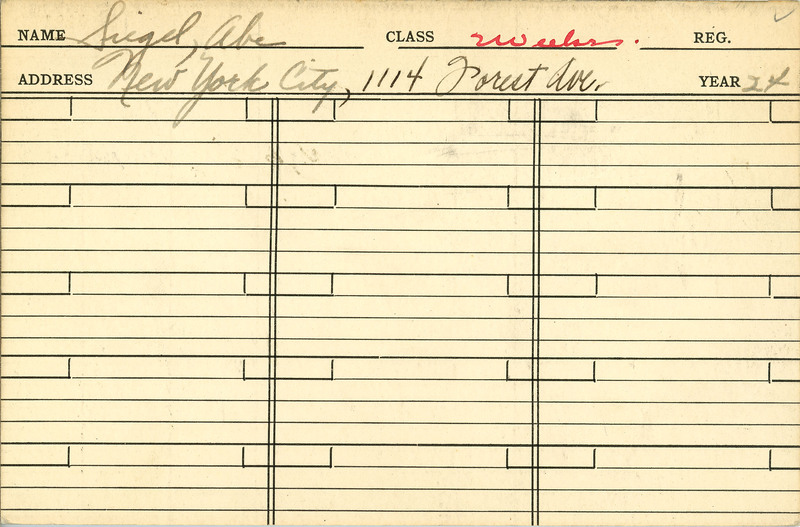 NAME Siegel, Abe CLASS 2 Weeks. REG.
ADDRESS New York City, 1114 Forest Ave. YEAR 24